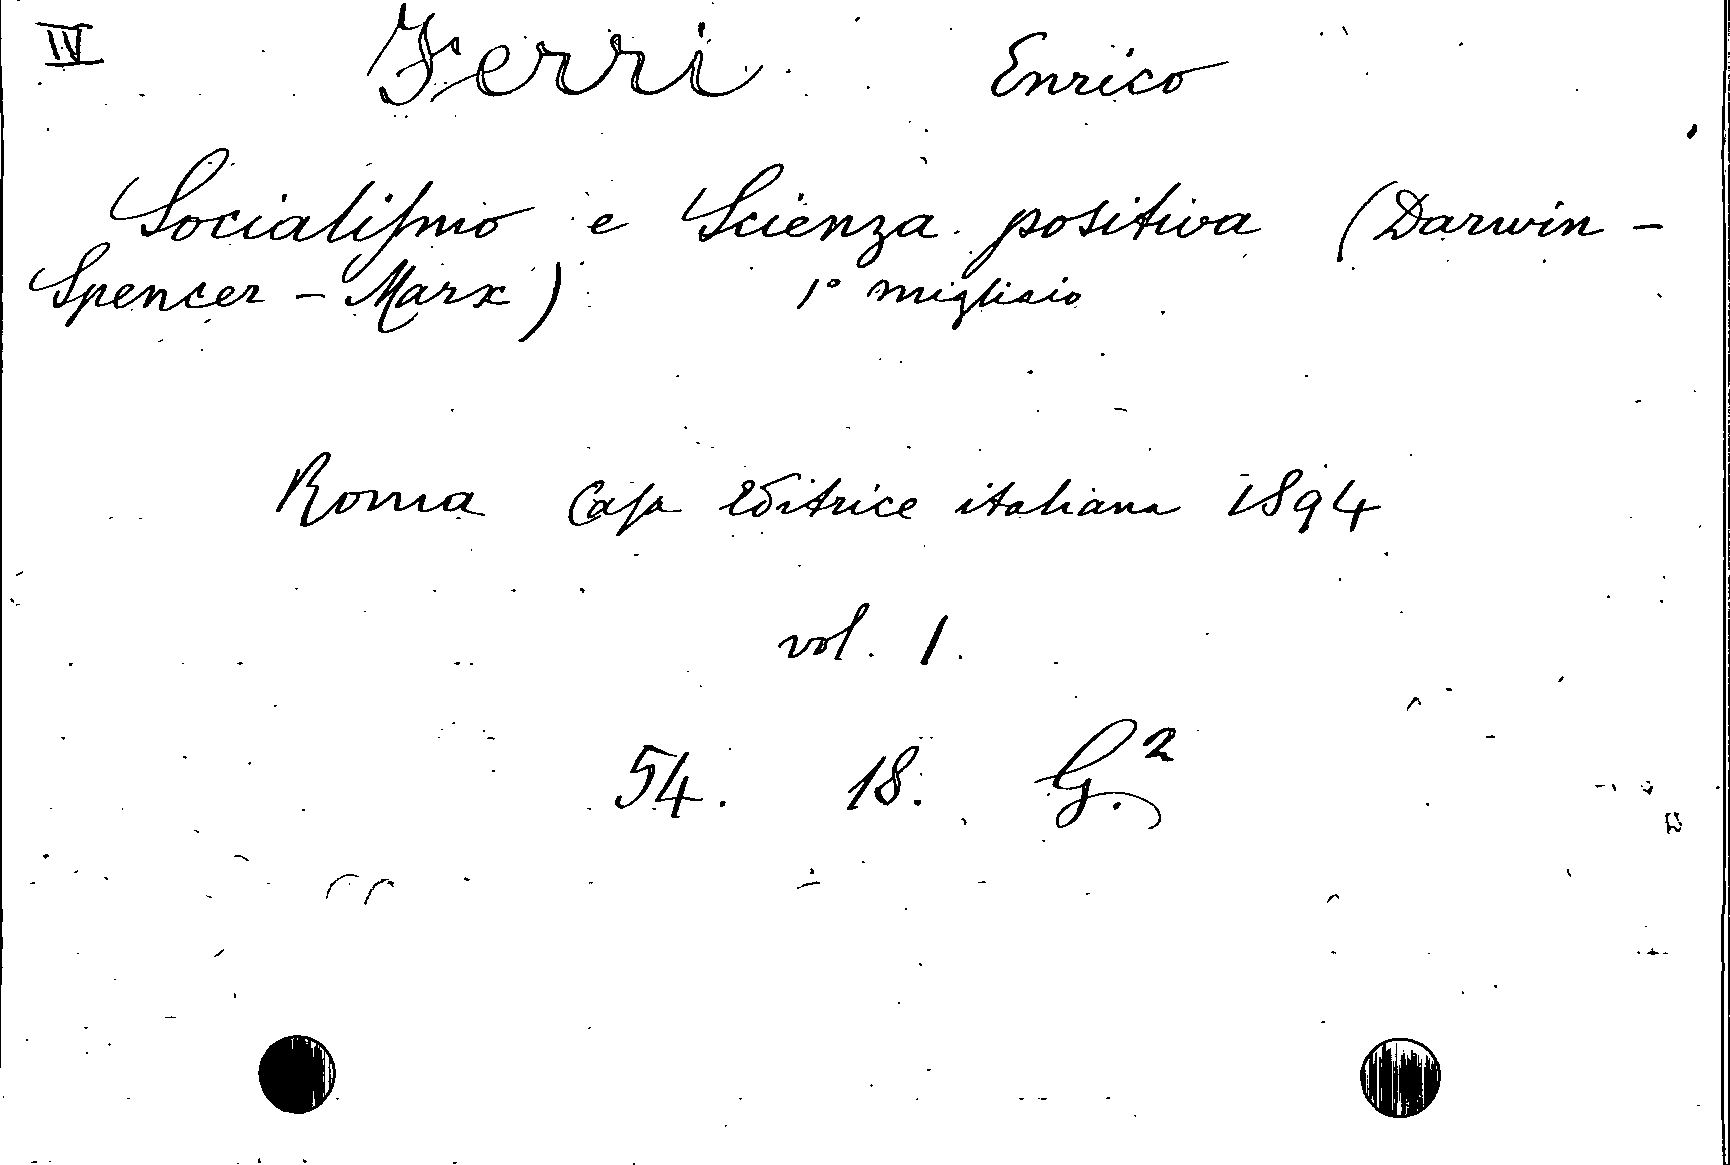 IV Ferri Enrico
Socialiſmo e Scienza positiva (Darwin -
Spencer - Marx) 1° migliaio
Roma Caſa Editrice italiana 1894
vol. 1.
54. 18. G.²